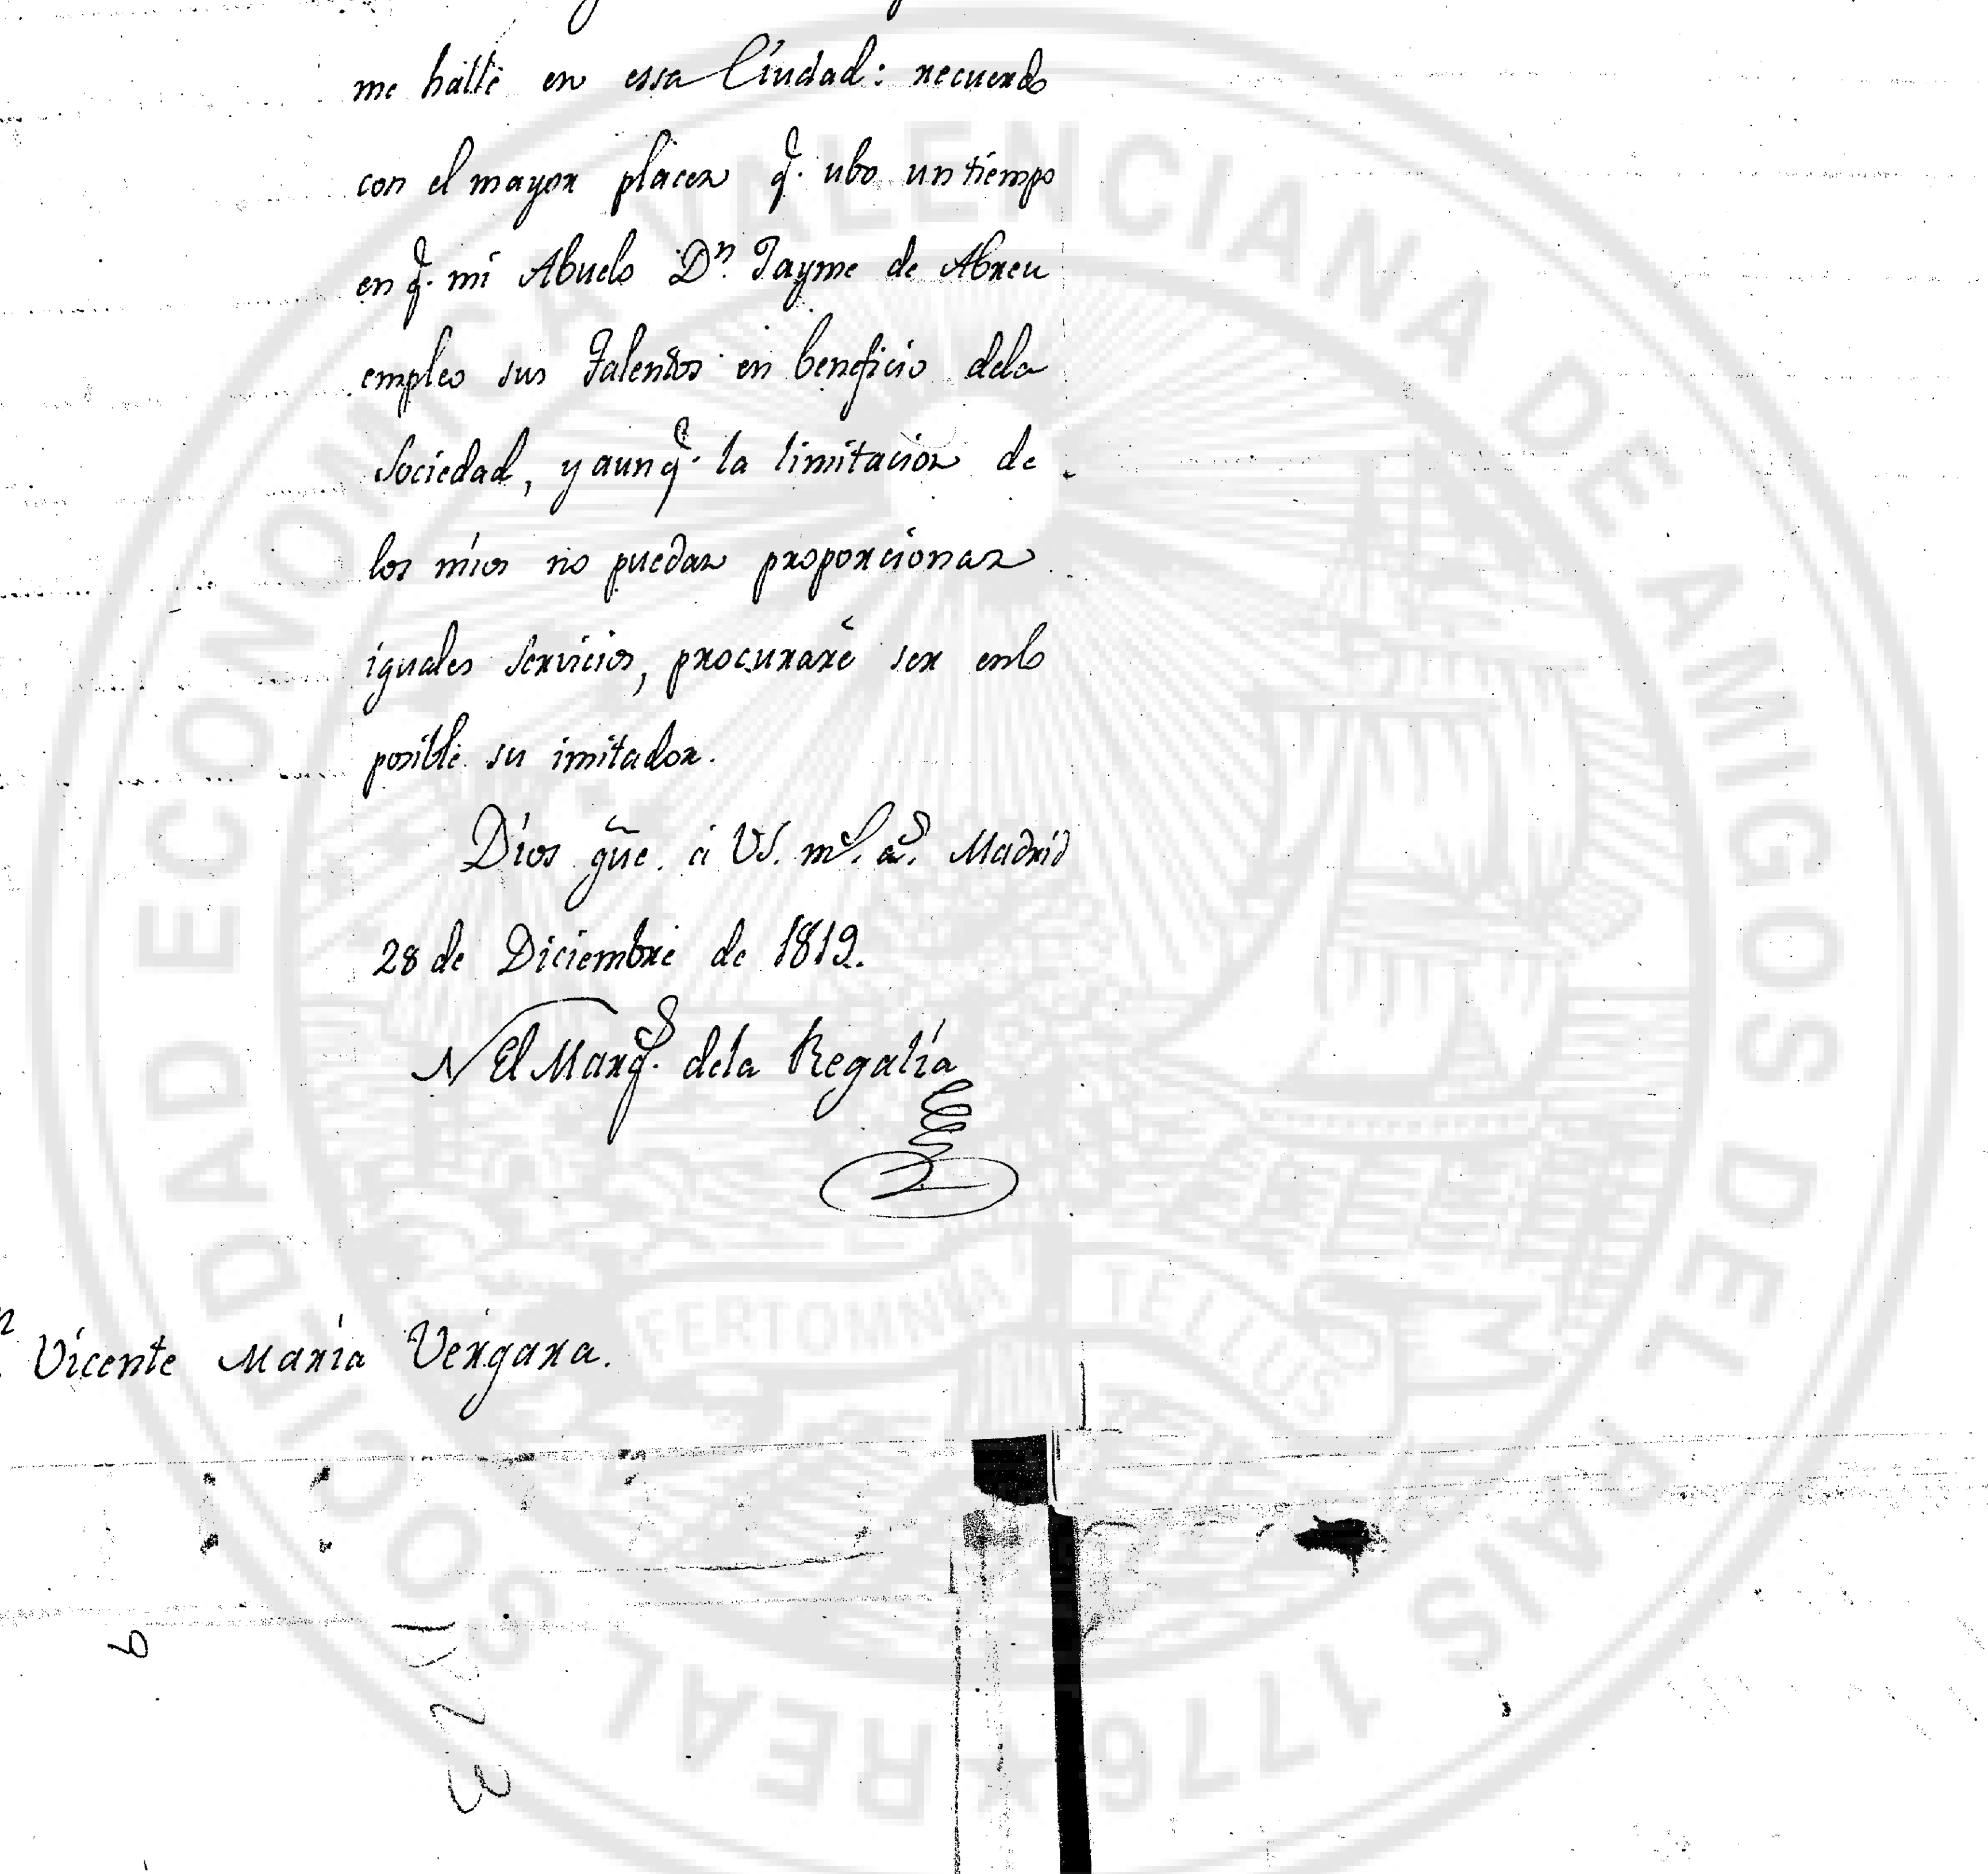 me hallè en essa Ciudad: recuerdo
con el mayor placer q.e ubo un tiempo
en q.e mi Abuelo D.n Jayme de Abreu
empleo sus Talentos en beneficio dela
Sociedad, y aunq.e la limitacion de
los mios no puedan proporcionar
iguales Servicios, procurarè ser enlo
posible su imitador.
Dios gũe. á VS. m.s a.s Madrid
28 de Diciembre de 1819.
El Marq.s dela Regalía
n Vicente Maria Vergara.
REAL SOCIEDAD ECONOMICA VALENCIANA DE AMIGOS DEL PAIS 1776
TELLUS